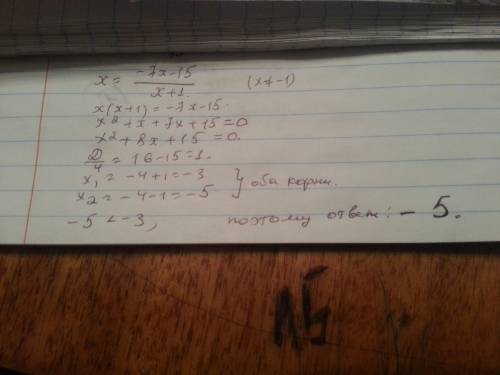 x = \frac{-7x-15}{x+1} (x≠-1)
x(x+1) = -7x-15.
x² + x + 7x + 15 = 0
x² + 8x + 15 = 0.
\frac{D}{4} = 16-15 = 1.
x₁ = -4+1 = -3
x₂ = -4-1 = -5 } оба корни.
-5 < -3, поэтому ответ: -5.